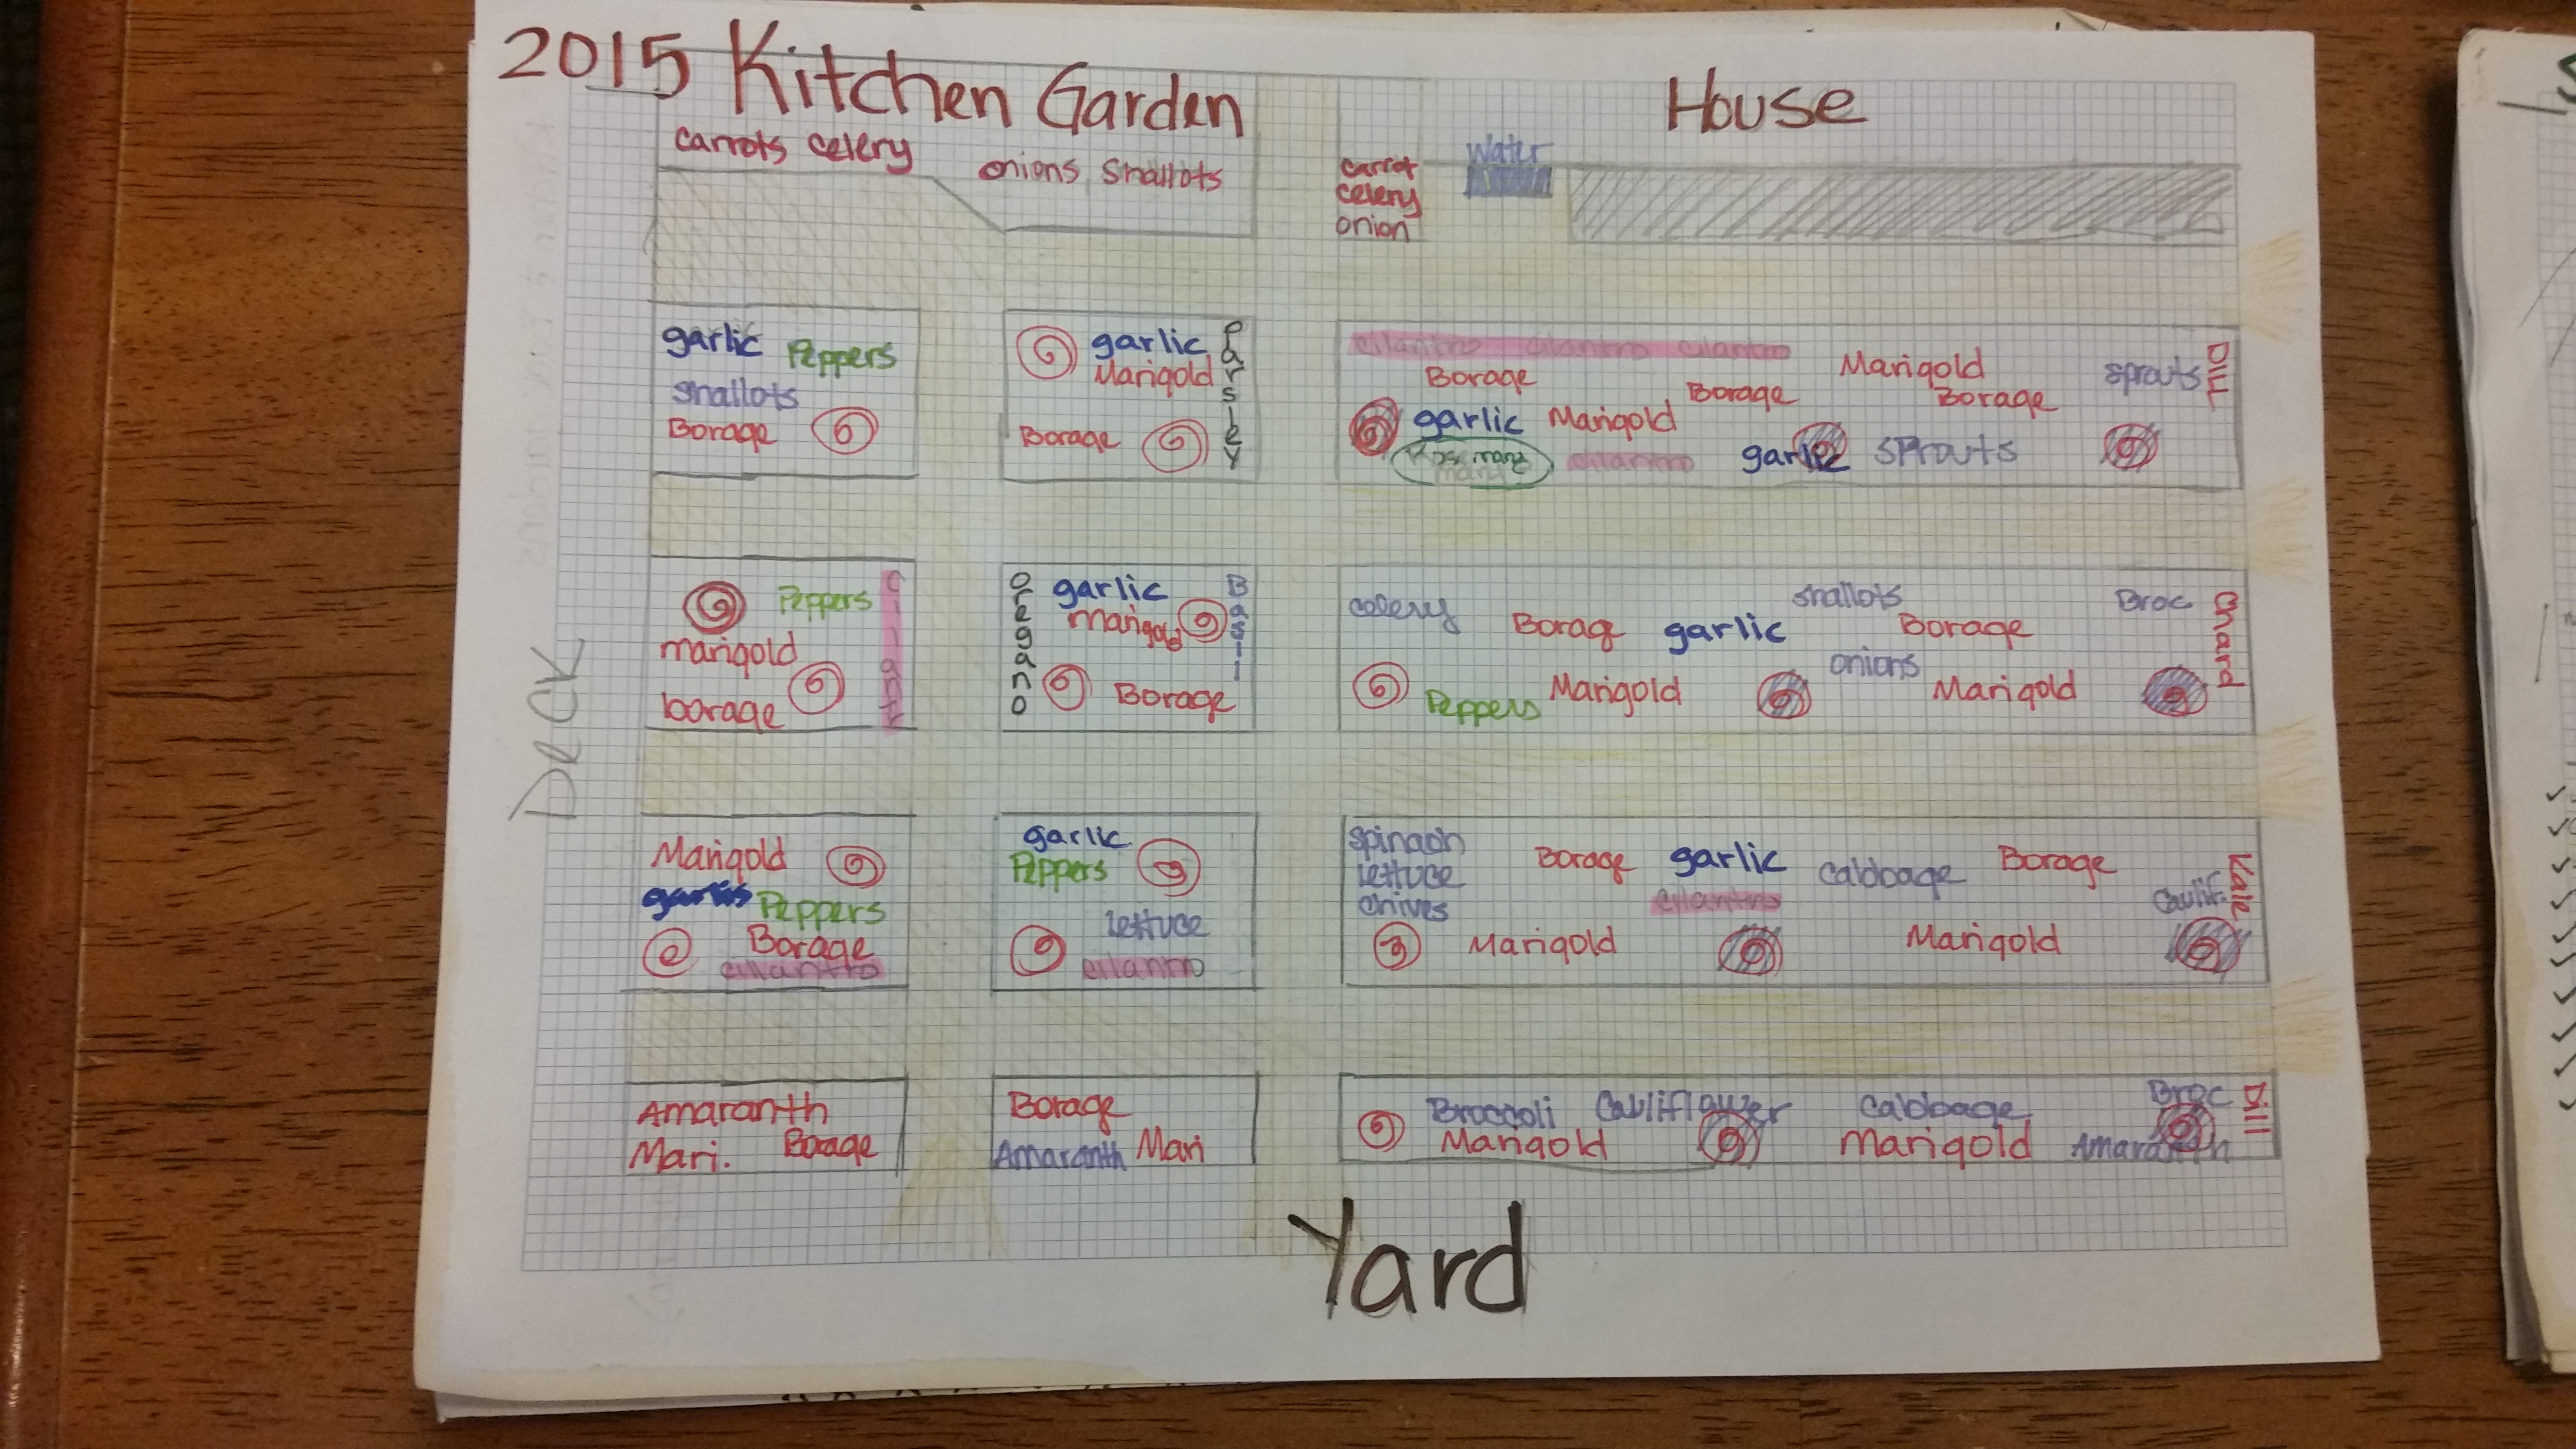 2015 Kitchen Garden
House
carrots celery
onions shallots
carrot
celery
onion
Water
garlic Peppers
shallots
Borage
garlic
Marigold
Borage
Parsley
cilantro cilantro cilantro
Borage
Borage
Marigold
Borage
sprouts
Dill
garlic Marigold
Rosemary
cilantro
garlic
sprouts
Peppers
marigold
borage
oregano
garlic
marigold
Basil
Borage
celery
Borag
garlic
shallots
Borage
Broc
chard
Peppers
Marigold
onions
Marigold
Deck
Marigold
garlic
Peppers
Borage
cilantro
garlic
Peppers
lettuce
cilantro
spinach
lettuce
chives
Borage
garlic
cabbage
Borage
Kale
cilantro
Caulif.
Marigold
Marigold
Amaranth
Mari. Borage
Borage
Amaranth Mari
Broccoli Cauliflower
Cabbage
Broc
Dill
Marigold
Marigold
Amaranth
Yard